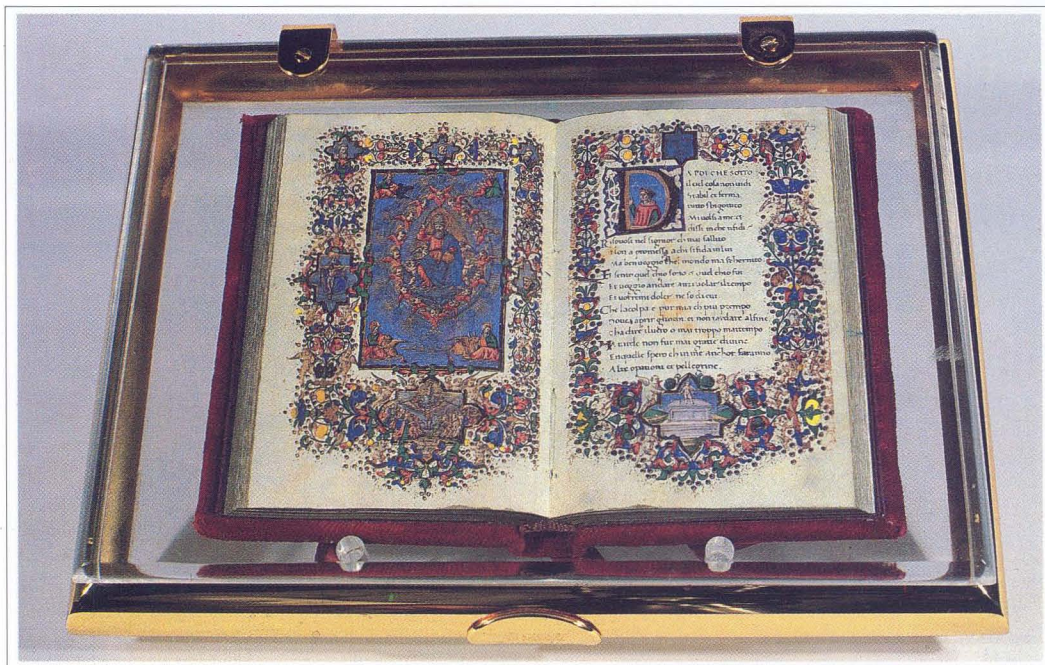 DA POI CHE SOTTO
il ciel cosa non vidi
stabil et ferma
tutto sbigotito
Mi volsi a me et
dissi in che ti fidi
Risposi nel signor ch mai fallito
Non a promessa a chi si fida in lui
Ma ben veggio che mondo ma schernito
Et sento quel chio sono et quel chio fui
Et veggio andare anzi volar il tempo
Et dolermi vorrei ne so di cui
Che la colpa e pur mia ch piu per tempo
dovea aprir gliocchi et non tardare al fine
cha dire il vero o mai troppo mattempo
Ma tarde non fur mai gratie divine
En quelle spero ch in me anchor faranno
Alte operationi et pellegrine.